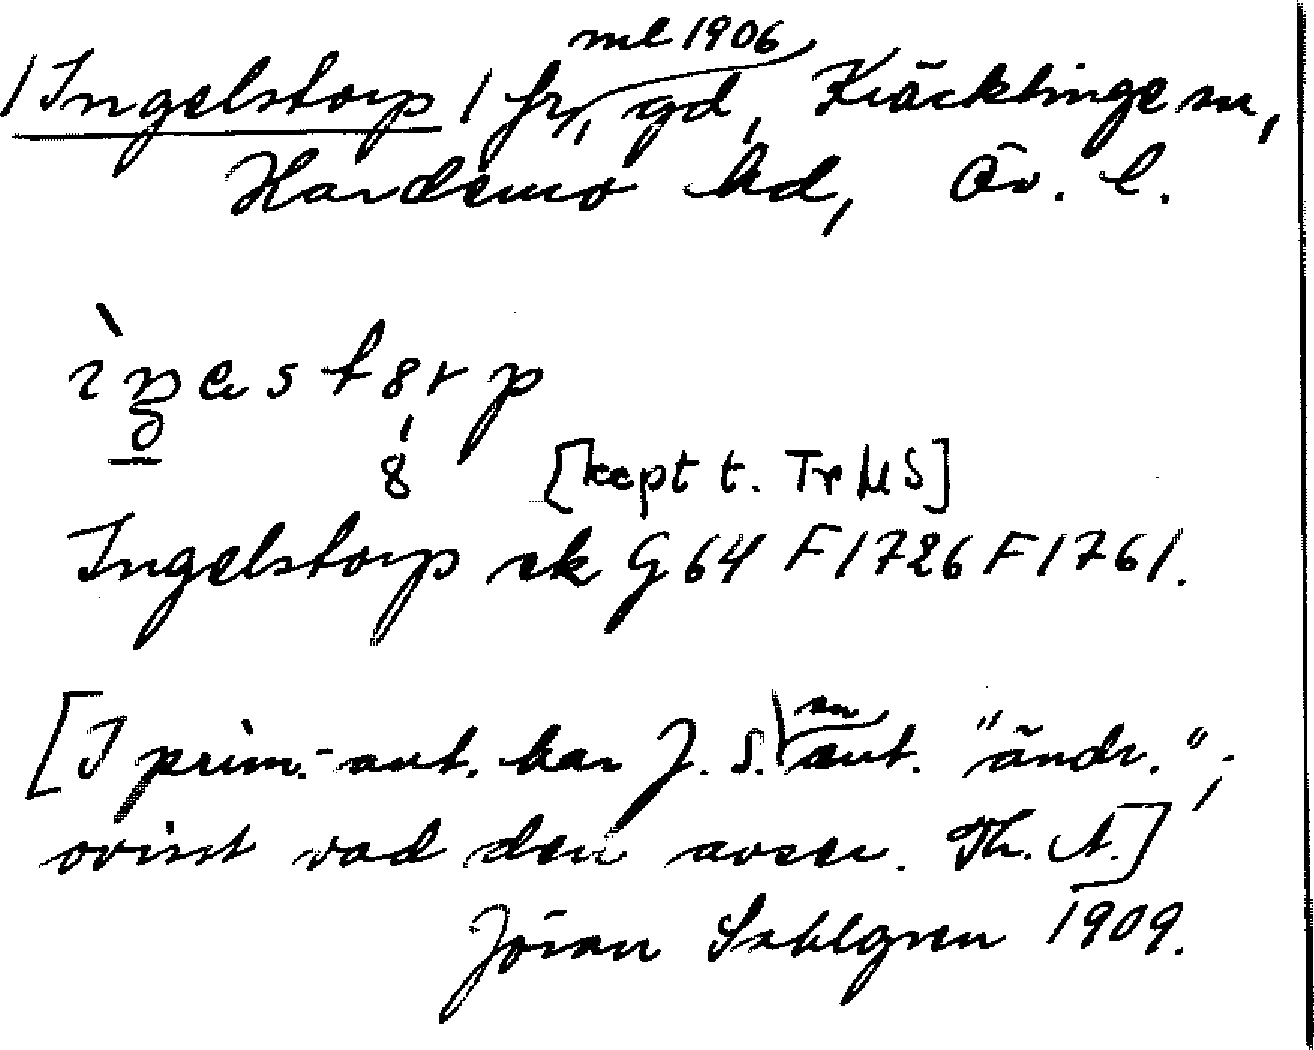 ml 1906
/Ingelstorp/ fr, gd, Kräcklinge sn,
Hardemo hd, Ör. l.
Ingelstorp sk G 64 F 1726 F 1761.
sn
[I prim.-ant. har J. S. ant. "ändr.";
ovisst vad den avser. Th. A.]
Jöran Sahlgren 1909.